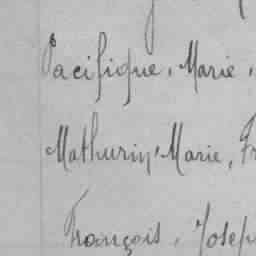 Pacifique, Marie,
Mathurin, Marie, Fr
François, Joseph